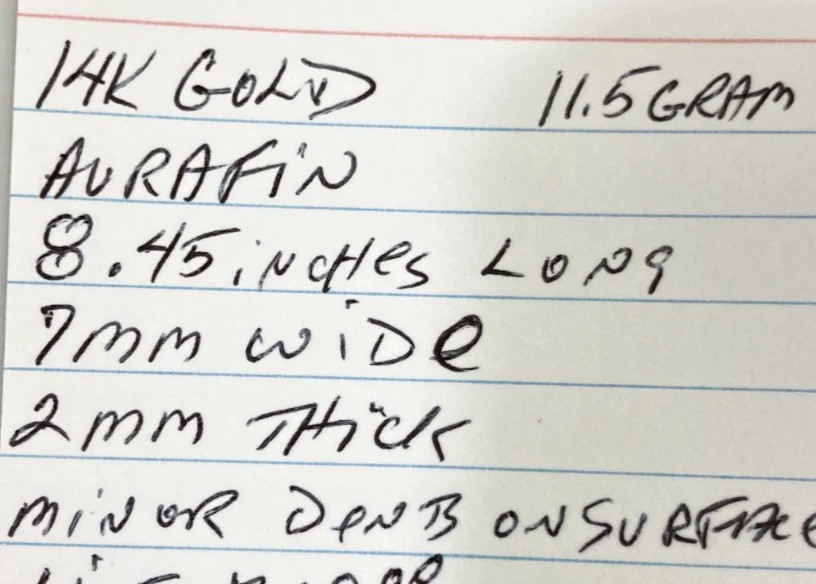 14K GOLD 11.5 GRAM
AURAFIN
8.45 inches LONG
7mm wide
2mm THick
minor DenTs on SURFACE